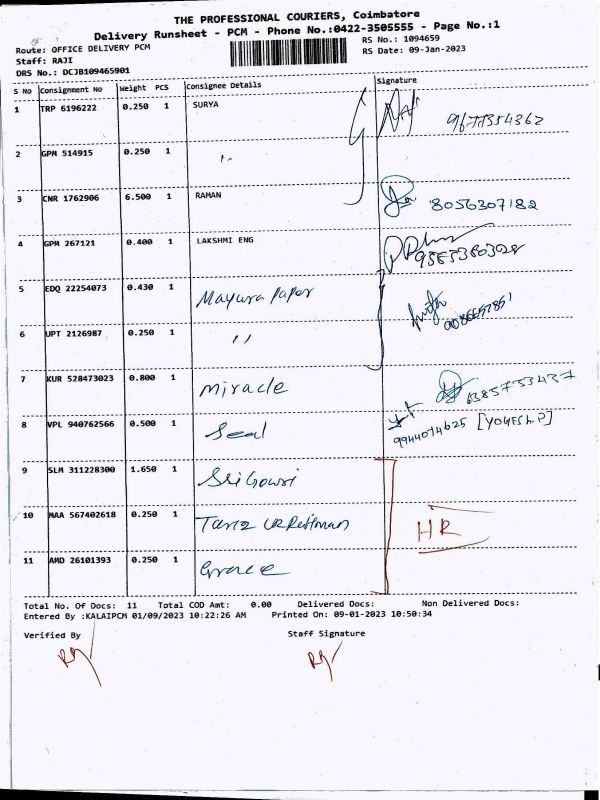 THE PROFESSIONAL COURIERS, Coimbatore
Delivery Runsheet - PCM - Phone No.:0422-3505555 - Page No.:1
Route: OFFICE DELIVERY PCM
RS No.: 1094659
Staff: RAJI
RS Date: 09-Jan-2023
DRS No.: DCJB109465901
S No Consignment No Weight PCS Consignee Details Signature
1 TRP 6196222 0.250 1 SURYA 9677354362
2 GPM 514915 0.250 1 "
3 CNR 1762906 6.500 1 RAMAN 8056307182
4 GPM 267121 0.400 1 LAKSHMI ENG
5 EDQ 22254073 0.430 1 Mayura Paper
6 UPT 2126987 0.250 1 "
7 KUR 528473023 0.800 1 miracle 6385733437
8 VPL 940762566 0.500 1 Seal 9944074625 [YOGESH.P]
9 SLM 311228300 1.650 1 Sri Gowri
10 MAA 567402618 0.250 1 HR
11 AMD 26101393 0.250 1 Grace
Total No. Of Docs: 11 Total COD Amt: 0.00 Delivered Docs: Non Delivered Docs:
Entered By :KALAIPCM 01/09/2023 10:22:26 AM Printed On: 09-01-2023 10:50:34
Verified By Staff Signature